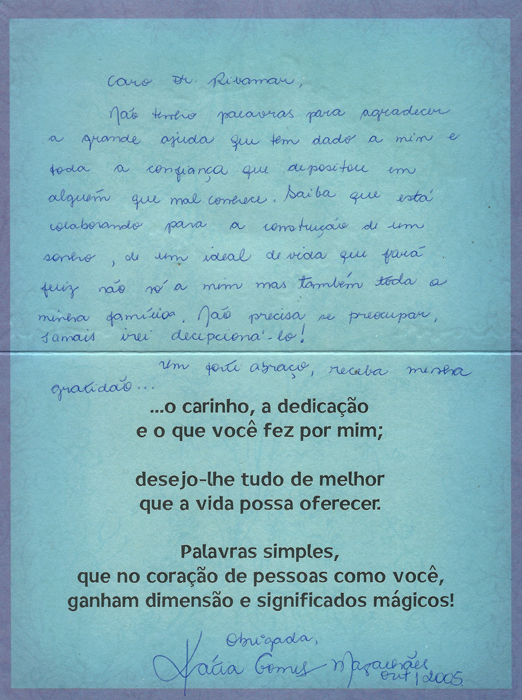 Caro Dr. Ribamar,
Não tenho palavras para agradecer
a grande ajuda que tem dado a mim e
toda a confiança que depositou em
alguém que mal conhece. Saiba que está
colaborando para a construção de um
sonho, de um ideal de vida que fará
feliz não só a mim mas também toda a
minha família. Não precisa se preocupar,
Jamais irei decepcioná-lo!
Um forte abraço, receba minha
gratidão...
...o carinho, a dedicação
e o que você fez por mim;
desejo-lhe tudo de melhor
que a vida possa oferecer.
Palavras simples,
que no coração de pessoas como você,
ganham dimensão e significados mágicos!
Obrigada,
Kátia Gomes Magalhães
out/2005